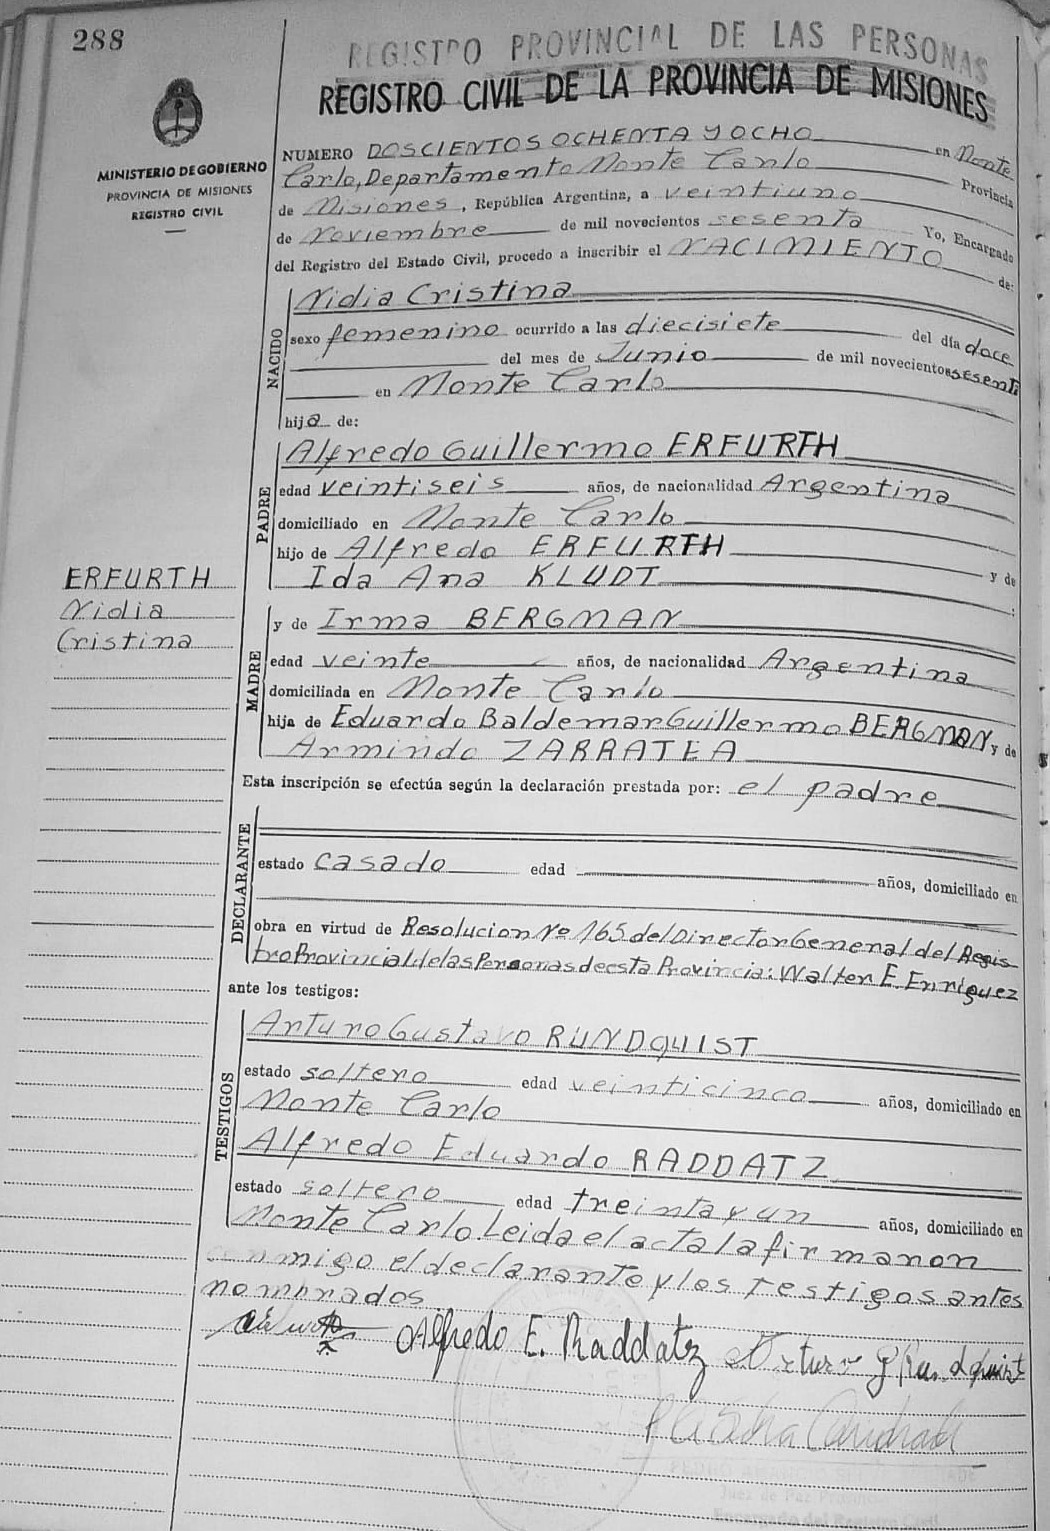 288
REGISTRO PROVINCIAL DE LAS PERSONAS
REGISTRO CIVIL DE LA PROVINCIA DE MISIONES
MINISTERIO DE GOBIERNO
PROVINCIA DE MISIONES
REGISTRO CIVIL
NUMERO DOSCIENTOS OCHENTA Y OCHO en Monte
Carlo, Departamento Monte Carlo Provincia
de Misiones, República Argentina, a veintiuno
de Noviembre de mil novecientos sesenta Yo, Encargado
del Registro del Estado Civil, procedo a inscribir el NACIMIENTO de:
NACIDO
Nidia Cristina
sexo femenino ocurrido a las diecisiete del día doce
del mes de Junio de mil novecientos sesenta
en Monte Carlo
hija de:
PADRE
Alfredo Guillermo ERFURTH
edad veintiseis años, de nacionalidad Argentina
domiciliado en Monte Carlo
hijo de Alfredo ERFURTH y de
Ida Ana KLUDT :
ERFURTH
Nidia
Cristina
MADRE
y de Irma BERGMAN
edad veinte años, de nacionalidad Argentina
domiciliada en Monte Carlo
hija de Eduardo Baldemar Guillermo BERGMAN y de
Armindo ZARRATEA
Esta inscripción se efectúa según la declaración prestada por: el padre
DECLARANTE
estado casado edad años, domiciliado en
obra en virtud de Resolucion Nº 165 del Director General del Regis-
tro Provincial de las Personas de esta Provincia: Walter E. Enriquez
ante los testigos:
TESTIGOS
Arturo Gustavo RUNDQUIST
estado soltero edad veinticinco años, domiciliado en
Monte Carlo
Alfredo Eduardo RADDATZ
estado soltero edad treinta y un años, domiciliado en
Monte Carlo. Leida el acta la firmaron
conmigo el declarante y los testigos antes
nombrados
Alfredo E. Raddatz Arturo G Rundquist